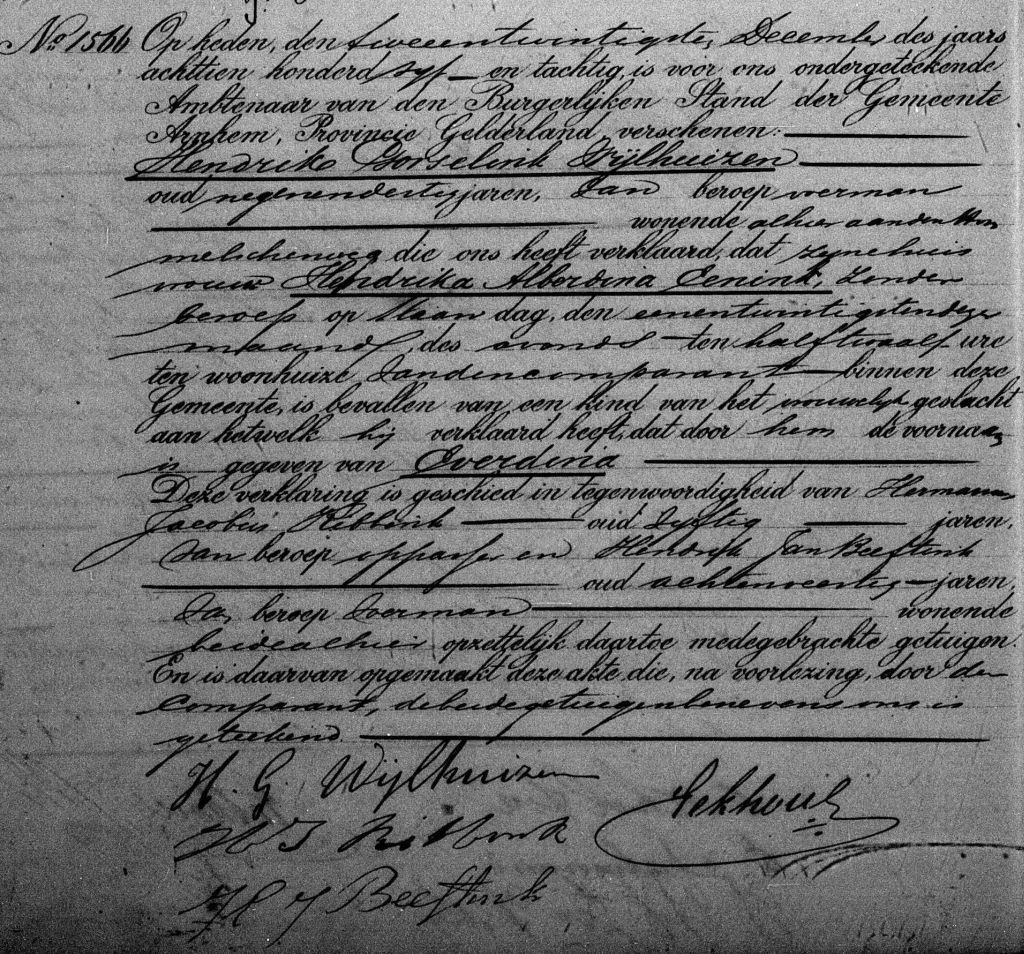 No 1566 Op heden, den tweeentwintigsten December des jaars
achttien honderd vyf en tachtig, is voor ons ondergeteekende
Ambtenaar van den Burgerlijken Stand der Gemeente
Arnhem, Provincie Gelderland, verschenen:
Hendrik Wijlhuizen
oud negenendertig jaren, van beroep voerman
wonende alhier aan den
die ons heeft verklaard, dat zijne huis
vrouw Hendrika Alberdina Eenink, zonder
beroep op Maandag, den eenentwintigsten dezer
maand, des avonds ten half twaalf ure
ten woonhuize van den comparant binnen deze
Gemeente, is bevallen van een kind van het vrouwelijk geslacht
aan hetwelk hij verklaard heeft, dat door hem de voornaam
is gegeven van Everdina
Deze verklaring is geschied in tegenwoordigheid van Hermanus
Jacobus Ribbink oud vyftig jaren,
van beroep oppasser en Hendrik Jan Beeftink
oud achtenveertig jaren,
van beroep voerman wonende
beide alhier opzettelijk daartoe medegebrachte getuigen.
En is daarvan opgemaakt deze akte, die, na voorlezing, door den
Comparant, de beide getuigen benevens ons is
geteekend
H. G. Wijlhuizen
H J Ribbink
H J Beeftink